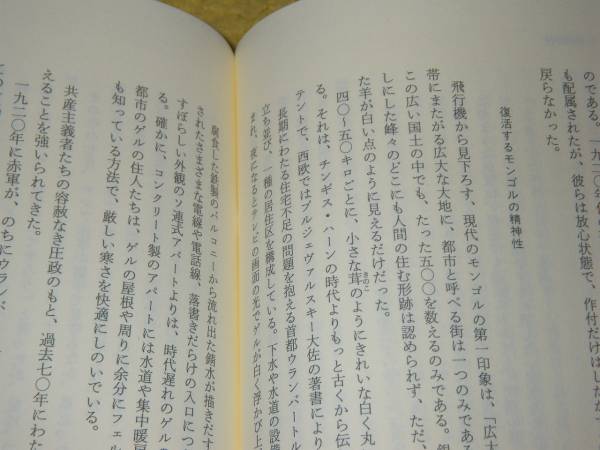 のである。一九二〇
も配属されたが、彼らは放心状態で、作付だけはしたか
戻らなかった。
復活するモンゴルの精神性
飛行機から見下ろす、現代のモンゴルの第一印象は、「広大
帯にまたがる広大な大地に、都市と呼べる街は一つのみであ
この広い国土の中でも、たった五〇〇を数えるのみである。
しにした峰々のどこにも人間の住む形跡は認められず、ただ、
た羊が白い点のように見えるだけだった。
四〇〜五〇キロごとに、小さな茸のようにきれいな白く丸
る。それは、チンギス・ハーンの時代よりもっと古くから伝
テントで、西欧ではプルジェヴァルスキー大佐の著書により
長期にわたる住宅不足の問題を抱える首都ウランバートル
立ち並び、一種の居住区を構成している。下水や水道の設備
まれ、夜になるとテレビの画面の光でゲルが白く浮かび上
腐食した鉄製のバルコニーから流れ出た錆水が描きだす
されたさまざまな電線や電話線、落書きだらけの入口につ
すぼらしい外観のソ連式アパートよりは、時代遅れのゲル
る。確かに、コンクリート製のアパートには水道や集中暖房
都市のゲルの住人たちは、ゲルの屋根や周りに余分にフェル
も知っている方法で、厳しい寒さを快適にしのいでいる。
共産主義者たちの容赦なき圧政のもと、過去七〇年にわた
えることを強いられてきた。
一九二〇年に赤軍が、のちにウランバ